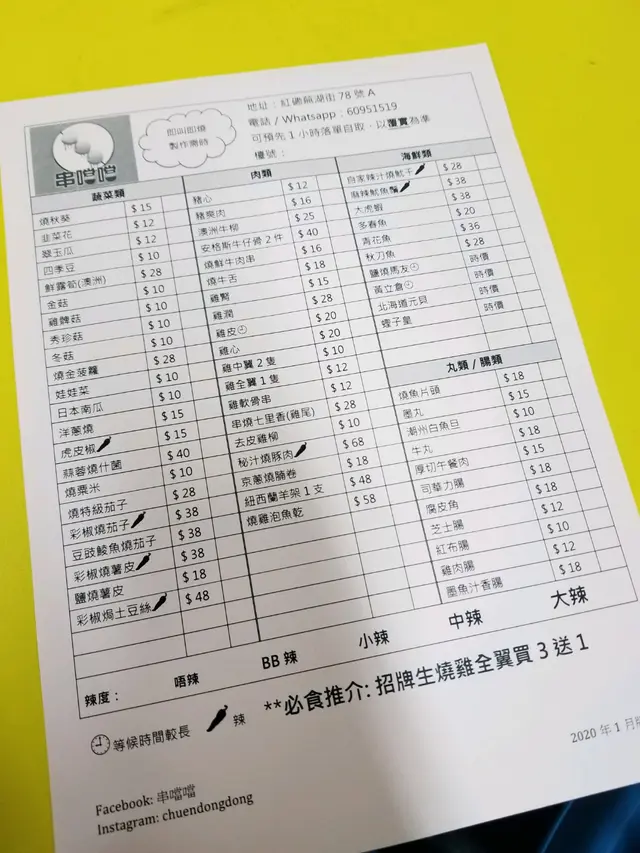 串噹噹
即叫即燒
製作需時
地址：紅磡蕪湖街 78 號 A
電話 / Whatsapp：60951519
可預先 1 小時落單自取，以覆實為準
檯號：
蔬菜類
燒秋葵 $ 15
韭菜花 $ 12
翠玉瓜 $ 12
四季豆 $ 10
鮮露筍(澳洲) $ 28
金菇 $ 10
雞髀菇 $ 10
秀珍菇 $ 10
冬菇 $ 10
燒金菠蘿 $ 28
娃娃菜 $ 10
日本南瓜 $ 10
洋蔥燒 $ 15
虎皮椒 $ 15
蒜蓉燒什菌 $ 40
燒粟米 $ 10
燒特級茄子 $ 28
彩椒燒茄子 $ 38
豆豉鯪魚燒茄子 $ 38
彩椒燒薯皮 $ 38
鹽燒薯皮 $ 18
彩椒焗土豆絲 $ 48
肉類
豬心 $ 12
豬爽肉 $ 16
澳洲牛柳 $ 25
安格斯牛仔骨 2 件 $ 40
燒鮮牛肉串 $ 16
燒牛舌 $ 18
雞腎 $ 15
雞潤 $ 28
雞皮 $ 20
雞心 $ 20
雞中翼 2 隻 $ 10
雞全翼 1 隻 $ 12
雞軟骨串 $ 12
串燒七里香(雞尾) $ 28
去皮雞柳 $ 10
秘汁燒豚肉 $ 68
京蔥燒腩卷 $ 18
紐西蘭羊架 1 支 $ 48
燒雞泡魚乾 $ 58
海鮮類
自家辣汁燒魷干 $ 28
麻辣魷魚鬚 $ 38
大虎蝦 $ 38
多春魚 $ 20
青花魚 $ 36
秋刀魚 $ 28
鹽燒馬友 時價
黃立倉 時價
北海道元貝 時價
蟶子皇 時價
丸類 / 腸類
燒魚片頭 $ 18
墨丸 $ 15
潮州白魚旦 $ 10
牛丸 $ 18
厚切午餐肉 $ 15
司華力腸 $ 18
腐皮角 $ 18
芝士腸 $ 12
紅布腸 $ 10
雞肉腸 $ 12
墨魚汁香腸 $ 18
辣度： 唔辣 BB 辣 小辣 中辣 大辣
等候時間較長 辣 **必食推介: 招牌生燒雞全翼買 3 送 1
Facebook: 串噹噹
Instagram: chuendongdong
2020 年 1 月版